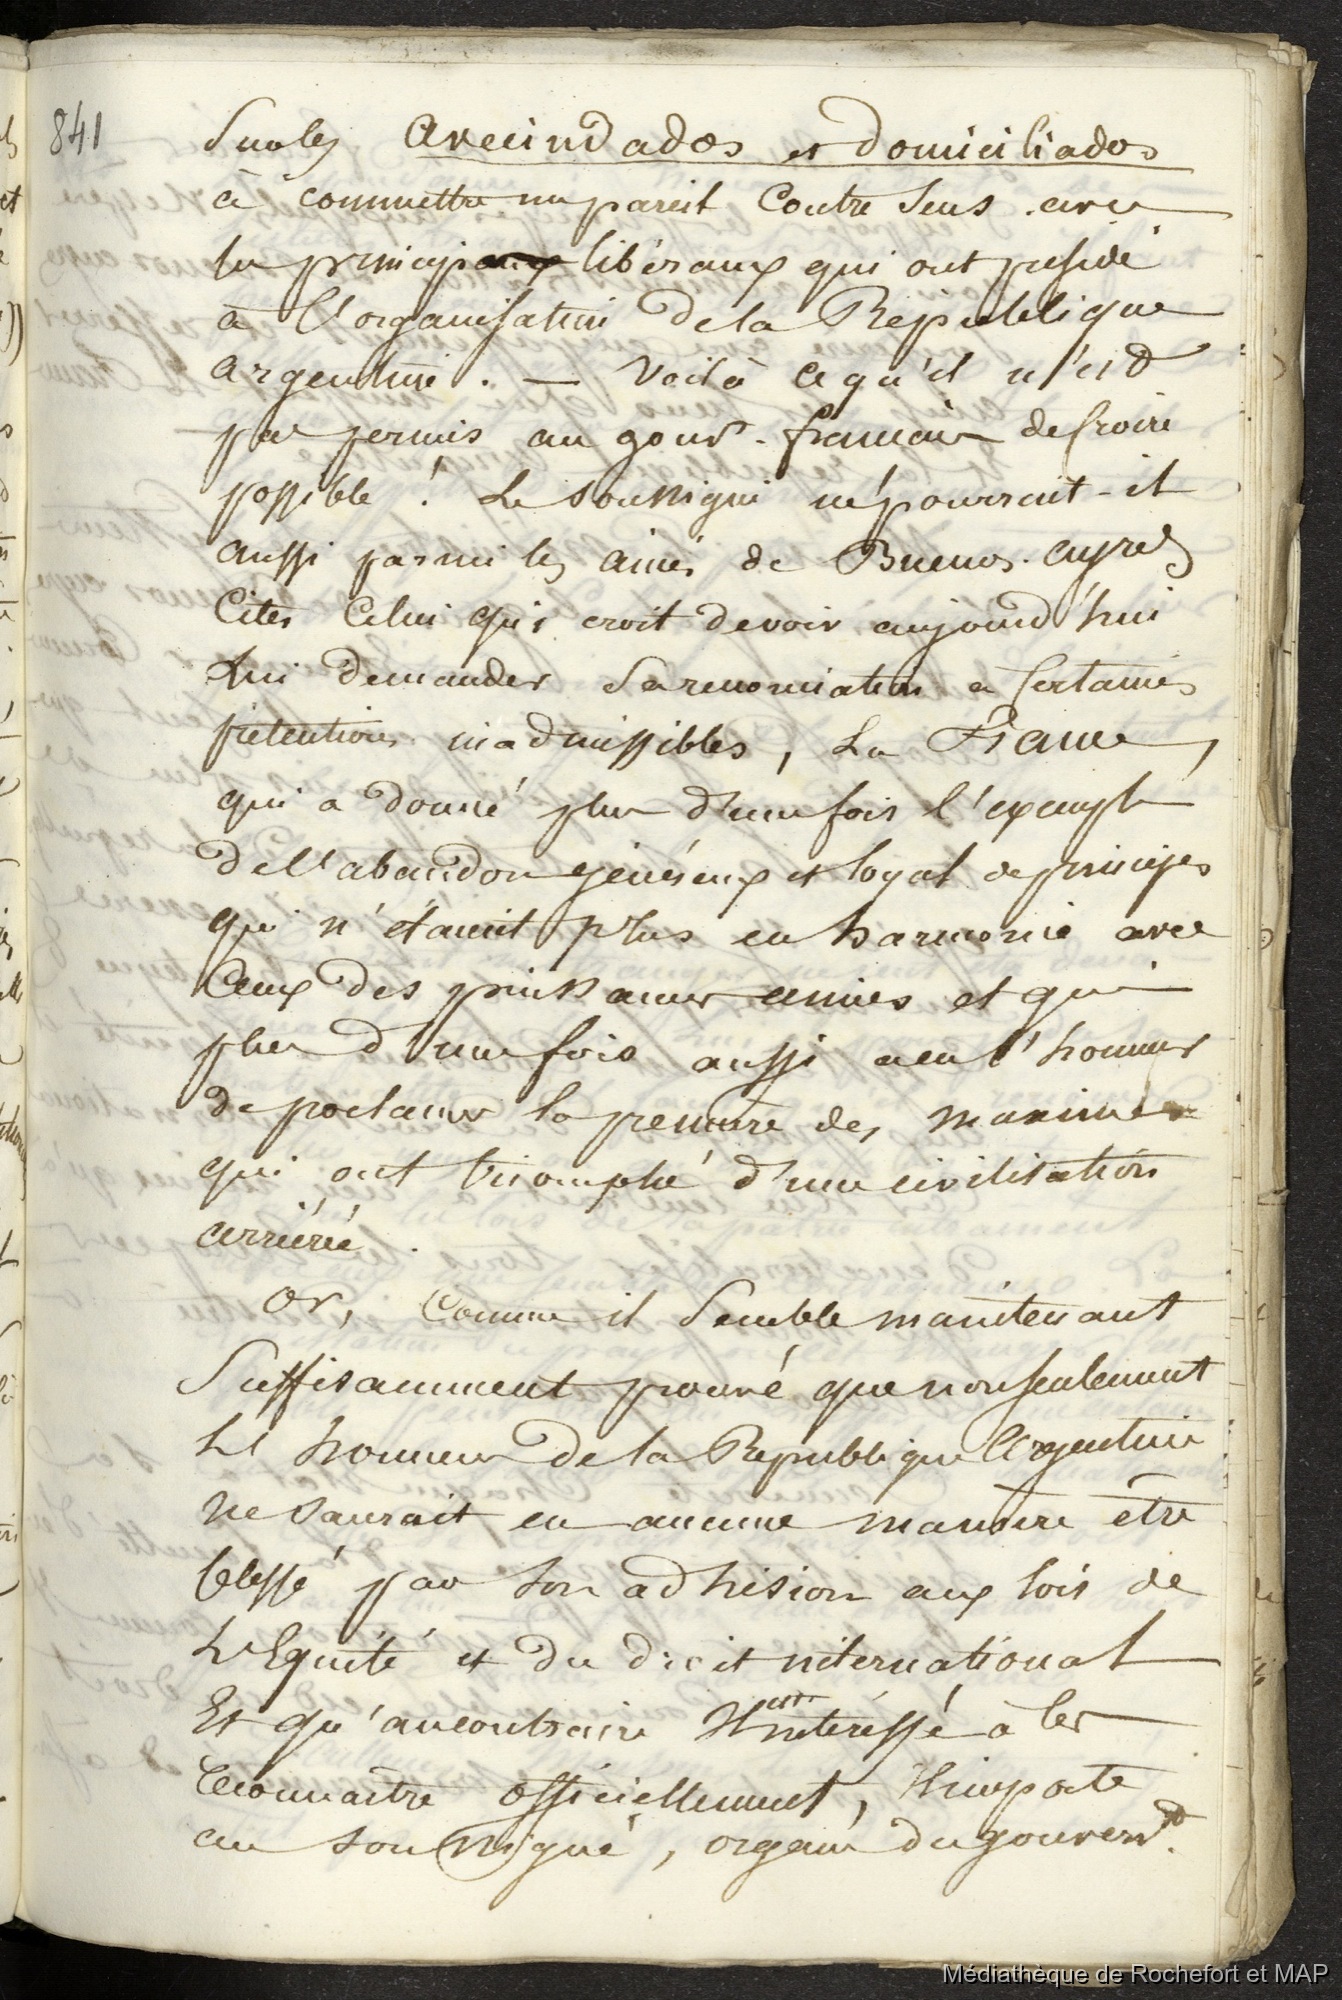 841
Sur les avecindados et domiciliados
à commettre un pareil Contre Sens avec
les principaux libéraux qui ont présidé
à l'organisation de la République
argentine. — Voilà ce qu'il n'est
pas permis au gouvt. français de Croire
possible ! Le soussigné ne pourrait-il
aussi parmi les aînés de Buenos-ayres
Citer Celui qui croit devoir aujourd'hui
lui demander Sa renonciation a Certaines
prétentions inadmissibles, La France,
qui a donné plus d'une fois l'exemple
de l'abandon généreux et loyal de principes
qui n'étaient plus en harmonie avec
Ceux des puissances amies et qui
plus d'une fois aussi a eu l'honneur
de proclamer la première des maximes
qui ont triomphé d'une civilisation
arriérée.
Or, Comme il Semble maintenant
Suffisamment prouvé que non seulement
L'honneur de la République Argentine
ne saurait en aucune manière être
blessé par son adhésion aux lois de
L'Equité et du droit international
Et qu'au contraire Il est intéressé à les
reconnaître officiellement, Il importe
au soussigné, organe du gouvernt.
Médiathèque de Rochefort et MAP